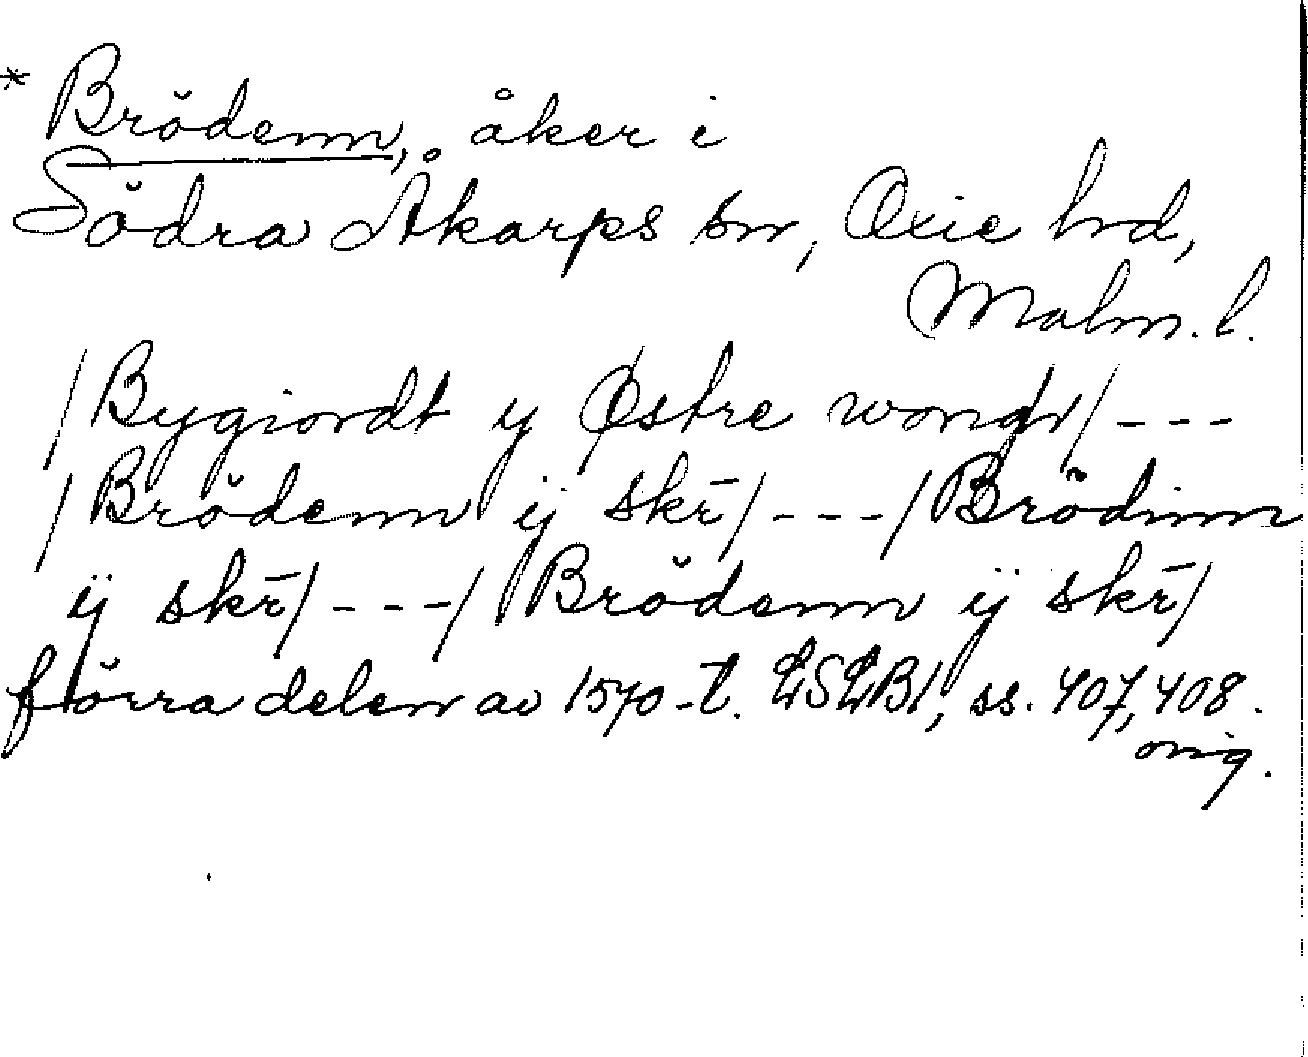 * Brödenn, åker i
Södra Åkarps sn, Oxie hd,
Malm. l.
/Bygiordt y Østre wongh/ ---
/Brödenn ij skr̄/ ---/Brödinn
ij skr̄/ ---/ Brödenn ij skr̄/
förra delen av 1570-t. LSLB1, ss. 407, 408.
orig.